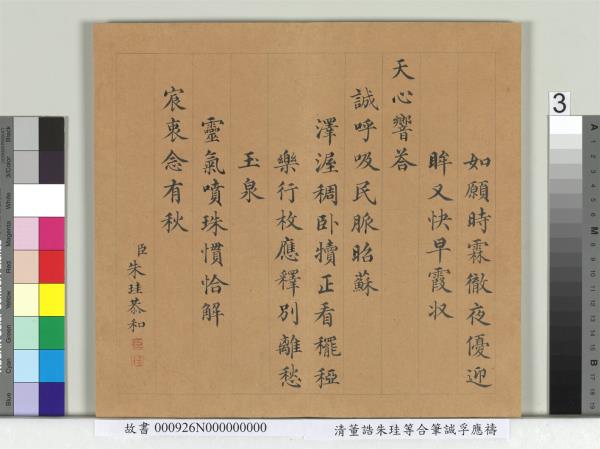 如願時霖徹夜優迎
眸又快早霞収
天心響荅
誠呼吸民脈昭蘇
澤渥稠卧犢正看䆉稏
樂行枚應釋別離愁
玉泉
靈氣噴珠慣恰解
宸衷念有秋
臣朱珪恭和
故書 000926N000000000
清董誥朱珪等合筆誠孚應禱
3
Black
3/Color
White
Magenta
Red
Yellow
Green
Cyan
Blue
A
M
B